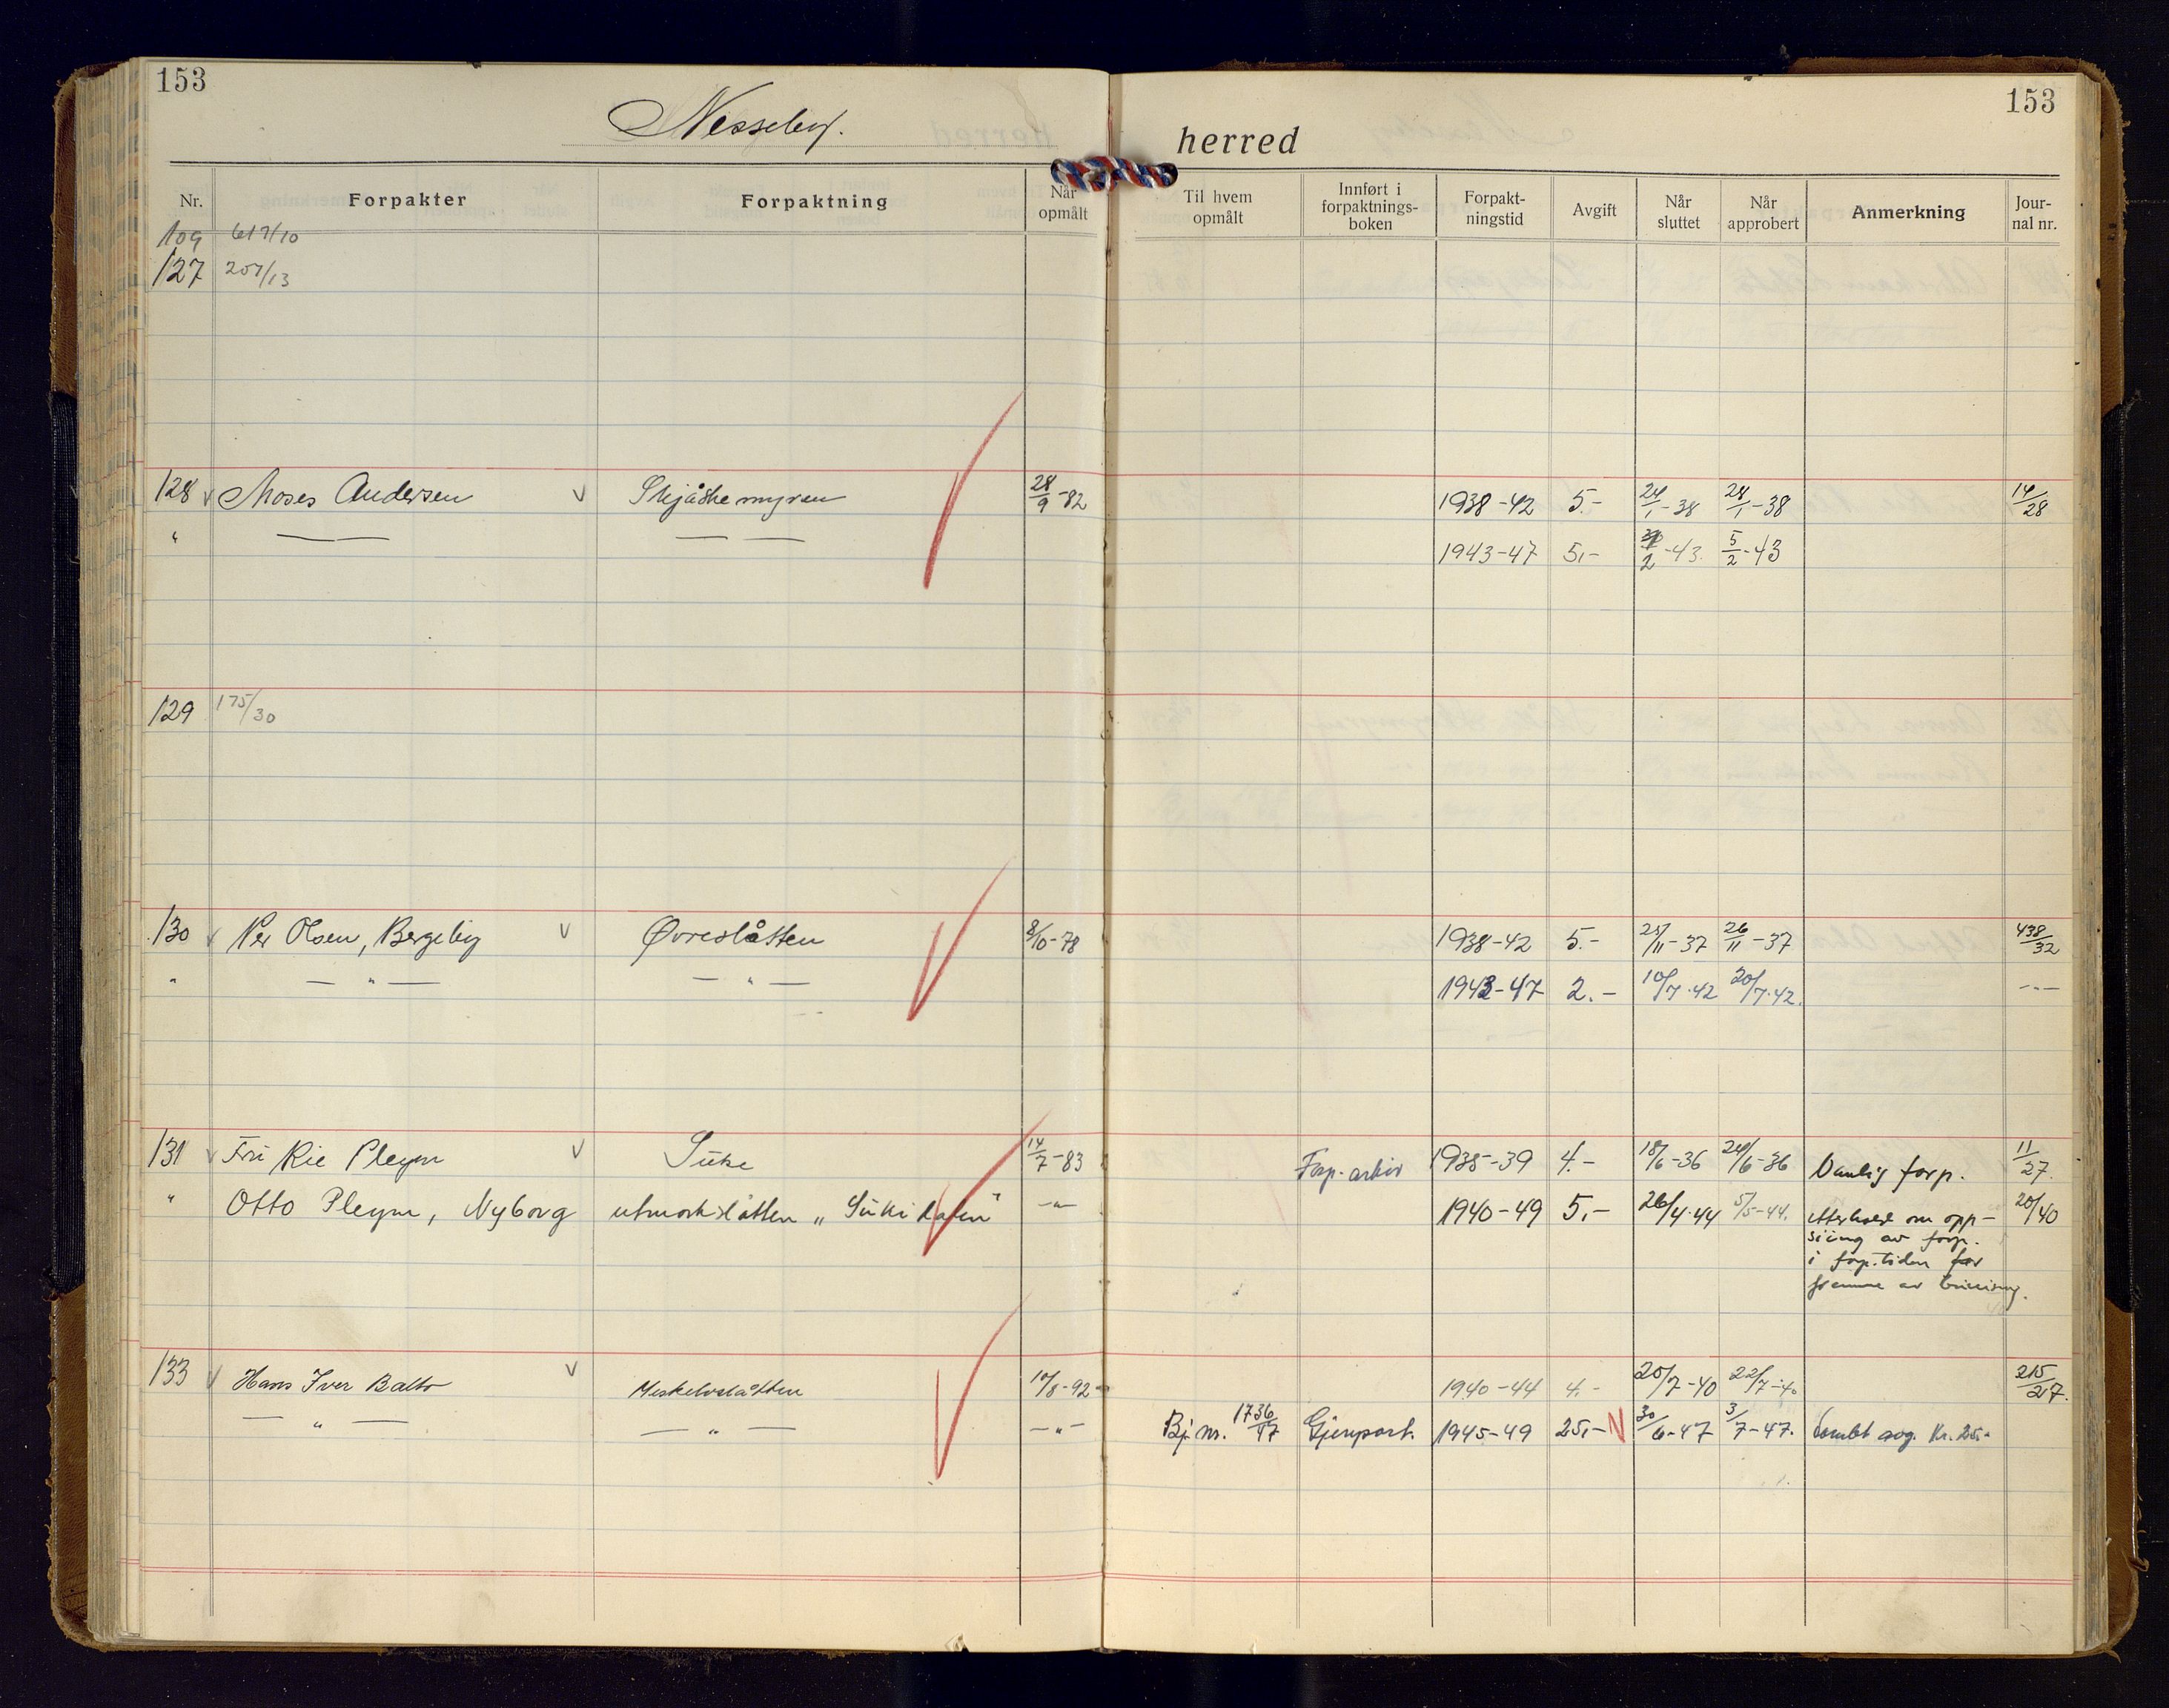 153
153
Nesseby. herred
Nr. Forpakter Forpaktning Når opmålt Til hvem opmålt Innført i forpaktnings-boken Forpakt-ningstid Avgift Når sluttet Når approbert Anmerkning Jour-nal nr.
109 617/10
127 257/13
128 Moses Andersen Skjåskemyren 28/9-82 1938-42 5.- 24/1-38 28/1-38 14/28
" — — — — 1943-47 5,- 2-43. 5/2-43
129 175/30
130 Per Olsen, Bergeby Øvreslåtten 8/10-78 1938-42 5.- 25/11-37 26/11-37 438/32
" — " — — " — 1943-47 2.- 10/7-42 20/7-42. -"-
131 Fru Rie Pleym Suke 14/7-83 Forp. arkiv 1935-39 4.- 18/6-36 24/6-36 Vanlig forp. 11/27.
" Otto Pleym, Nyborg utmarkslåtten „Sukislåtten" -"- 1940-49 5,- 26/4-44 5/5-44. om opp-
20/40
av forp.
i forp.tiden
av
133 Hans Iver Balto Meskelvslåtten 10/8-92 1940-44 4.- 20/7-40 22/7-40 215/27.
— " — — " — -"- Bj. nr. 1736/47 Gjenpart. 1945-49 25,- N 30/6-47 3/7-47. avg. Kr. 25,-